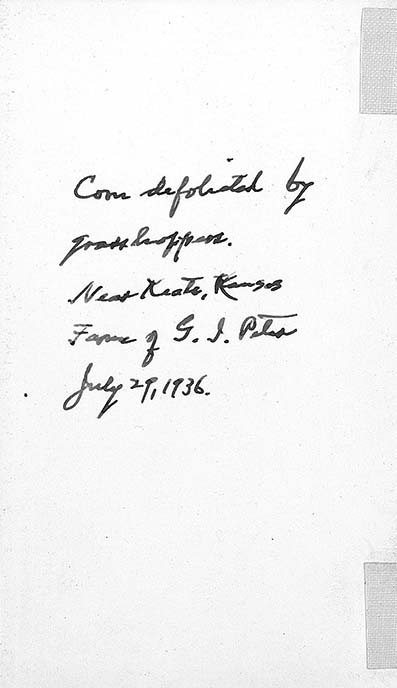 Corn defoliated by
grasshoppers.
Near Keats, Kansas
Farm of G. I.
July 29, 1936.